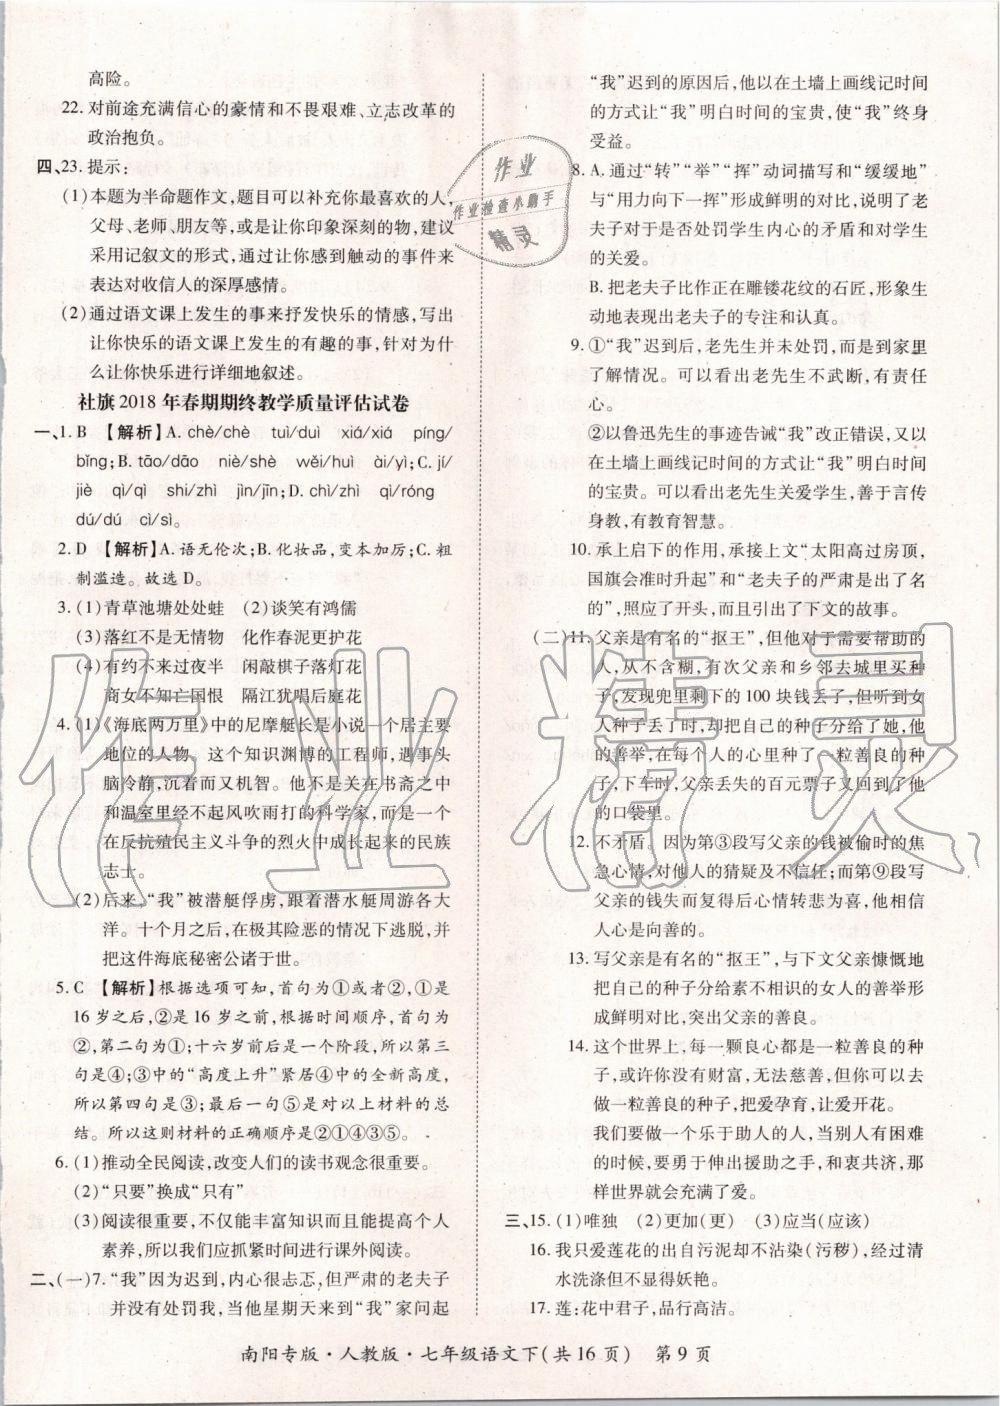 高险。
22. 对前途充满信心的豪情和不畏艰难、立志改革的
政治抱负。
四、23. 提示：
(1)本题为半命题作文，题目可以补充你最喜欢的人，
父母、老师、朋友等，或是让你印象深刻的物，建议
采用记叙文的形式，通过让你感到触动的事件来
表达对收信人的深厚感情。
(2)通过语文课上发生的事来抒发快乐的情感，写出
让你快乐的语文课上发生的有趣的事，针对为什
么让你快乐进行详细地叙述。
社旗 2018 年春期期终教学质量评估试卷
一、1. B 【解析】A. chè/chè tuì/duì xiá/xiá píng/
bǐng；B. tāo/dāo niè/shè wěi/huì ài/yì；C. jí/
jiè qì/qì shi/zhì jìn/jīn；D. chì/qì/róng
dú/dú cì/sì。
2. D 【解析】A. 语无伦次；B. 化妆品，变本加厉；C. 粗
制滥造。故选 D。
3. (1)青草池塘处处蛙 (2)谈笑有鸿儒
(3)落红不是无情物 化作春泥更护花
(4)有约不来过夜半 闲敲棋子落灯花
商女不知亡国恨 隔江犹唱后庭花
4. (1)《海底两万里》中的尼摩艇长是小说一个居主要
地位的人物。这个知识渊博的工程师，遇事头
脑冷静，沉着而又机智。他不是关在书斋之中
和温室里经不起风吹雨打的科学家，而是一个
在反抗殖民主义斗争的烈火中成长起来的民族
志士。
(2)后来，“我”被潜艇俘虏，跟着潜水艇周游各大
洋。十个月之后，在极其险恶的情况下逃脱，并
把这件海底秘密公诸于世。
5. C 【解析】根据选项可知，首句为①或者②，①是
16 岁之后，②是 16 岁之前，根据时间顺序，首句为
②，第二句为①；十六岁前后是一个阶段，所以第三
句是④；③中的“高度上升”紧居④中的全新高度，
所以第四句是③；最后一句⑤是对以上材料的总
结。所以这则材料的正确顺序是②①④③⑤。
6. (1)推动全民阅读，改变人们的读书观念很重要。
(2)“只要”换成“只有”
(3)阅读很重要，不仅能丰富知识而且能提高个人
素养，所以我们应抓紧时间进行课外阅读。
二、(一)7. “我”因为迟到，内心很忐忑，但严肃的老夫子
并没有处罚我，当他星期天来到“我”家问起
“我”迟到的原因后，他以在土墙上画线记时间
的方式让“我”明白时间的宝贵，使“我”终身
受益。
8. A. 通过“转”“举”“挥”动词描写和“缓缓地”
与“用力向下一挥”形成鲜明的对比，说明了老
夫子对于是否处罚学生内心的矛盾和对学生
的关爱。
B. 把老夫子比作正在雕镂花纹的石匠，形象生
动地表现出老夫子的专注和认真。
9. ①“我”迟到后，老先生并未处罚，而是到家里
了解情况。可以看出老先生不武断，有责任
心。
②以鲁迅先生的事迹告诫“我”改正错误，又以
在土墙上画线记时间的方式让“我”明白时间
的宝贵。可以看出老先生关爱学生，善于言传
身教，有教育智慧。
10. 承上启下的作用，承接上文“太阳高过房顶，
国旗会准时升起”和“老夫子的严肃是出了名
的”，照应了开头，而且引出了下文的故事。
(二)11. 父亲是有名的“抠王”，但他对于需要帮助的
人，从不含糊，有次父亲和乡邻去城里买种
子，发现兜里剩下的 100 块钱丢了，但听到女
人种子丢了时，却把自己的种子分给了她，他
的善举，在每个人的心里种了一粒善良的种
子，下车时，父亲丢失的百元票子又回到了他
的口袋里。
12. 不矛盾。因为第③段写父亲的钱被偷时的焦
急心情，对他人的猜疑及不信任；而第⑨段写
父亲的钱失而复得后心情转悲为喜，他相信
人心是向善的。
13. 写父亲是有名的“抠王”，与下文父亲慷慨地
把自己的种子分给素不相识的女人的善举形
成鲜明对比，突出父亲的善良。
14. 这个世界上，每一颗良心都是一粒善良的种
子，或许你没有财富，无法慈善，但你可以去
做一粒善良的种子，把爱孕育，让爱开花。
我们要做一个乐于助人的人，当别人有困难
的时候，要勇于伸出援助之手，和衷共济，那
样世界就会充满了爱。
三、15. (1)唯独 (2)更加(更) (3)应当(应该)
16. 我只爱莲花的出自污泥却不沾染(污秽)，经过清
水洗涤但不显得妖艳。
17. 莲：花中君子，品行高洁。
南阳专版·人教版·七年级语文下(共 16 页) 第 9 页
作业
作业检查小助手
精灵
作业精灵